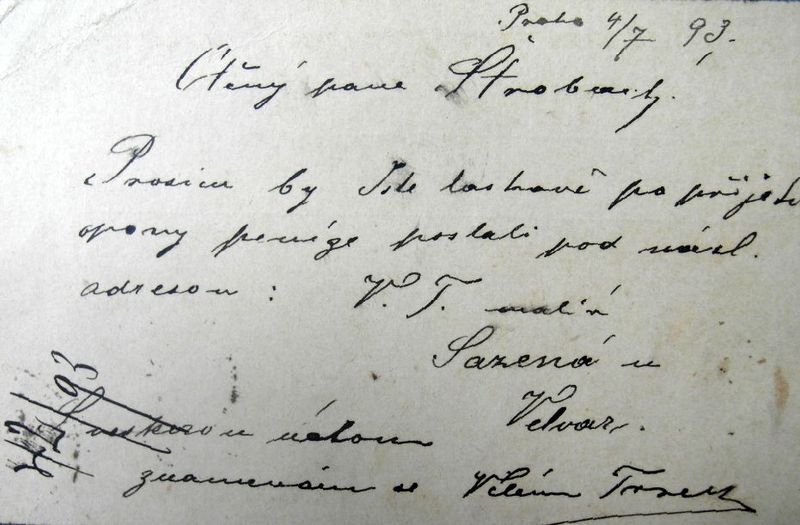 Praha 4/7 93.
Ctěný pane Štrobach.
Prosím by Jste laskavě po přijetí
opony peníze poslali pod násl.
adresou: V. T. malíř
Sazená u
Velvar.
S veškerou úctou
znamenám se Vilém
93